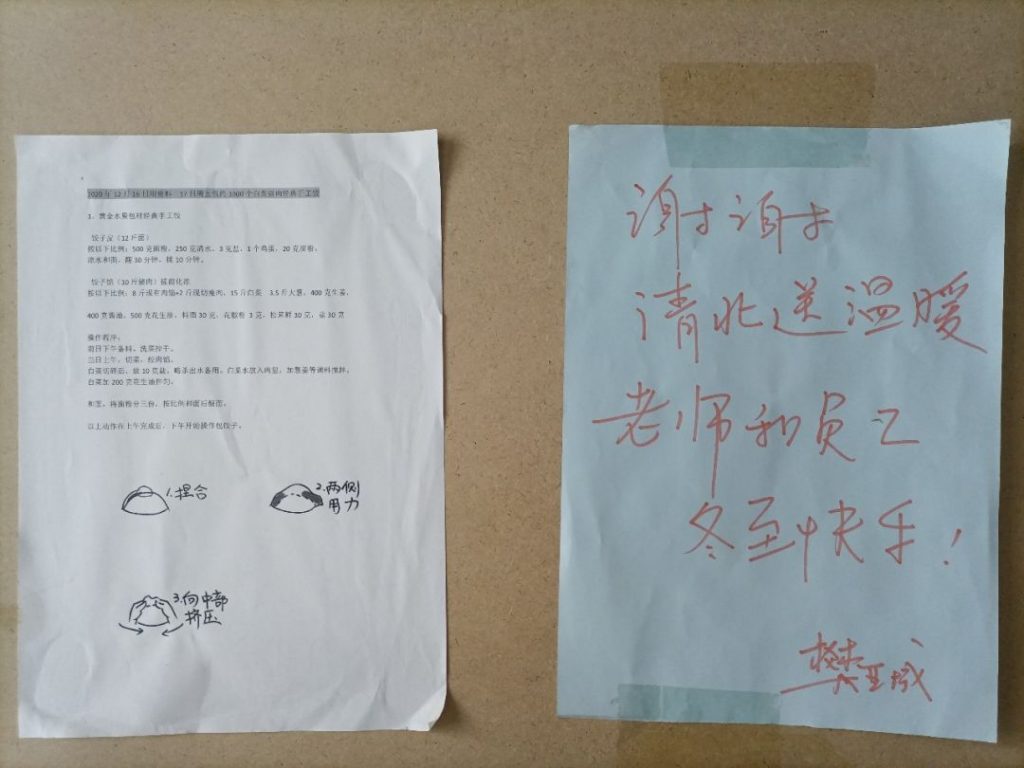 1、黄金水果包对经典手工饺
饺子皮（12斤面）
按以下比例：500克面粉，250克清水，3克盐，1个鸡蛋，20克淀粉，
凉水和面，醒30分钟，揉10分钟。
饺子馅（10斤猪肉）提前化冻
按以下比例：8斤现有肉馅+2斤现切瘦肉，15斤白菜 3.5斤大葱，400克生姜，
400克酱油，500克花生油，料酒30克，花椒粉3克，松茸鲜30克，盐30克
操作程序：
前日下午备料、洗菜控干。
当日上午，切菜，绞肉馅。
白菜切碎后，放10克盐，略杀出水备用。白菜水放入肉里，加葱姜等调料搅拌。
白菜加200克花生油拌匀。
和面，将面粉分三份，按比例和面后醒面。
以上动作在上午完成后，下午开始操作包饺子。
1.捏合
2.两侧
用力
3.向中部
挤压
谢谢
清北送温暖
老师和员工
冬至快乐！
樊亚城